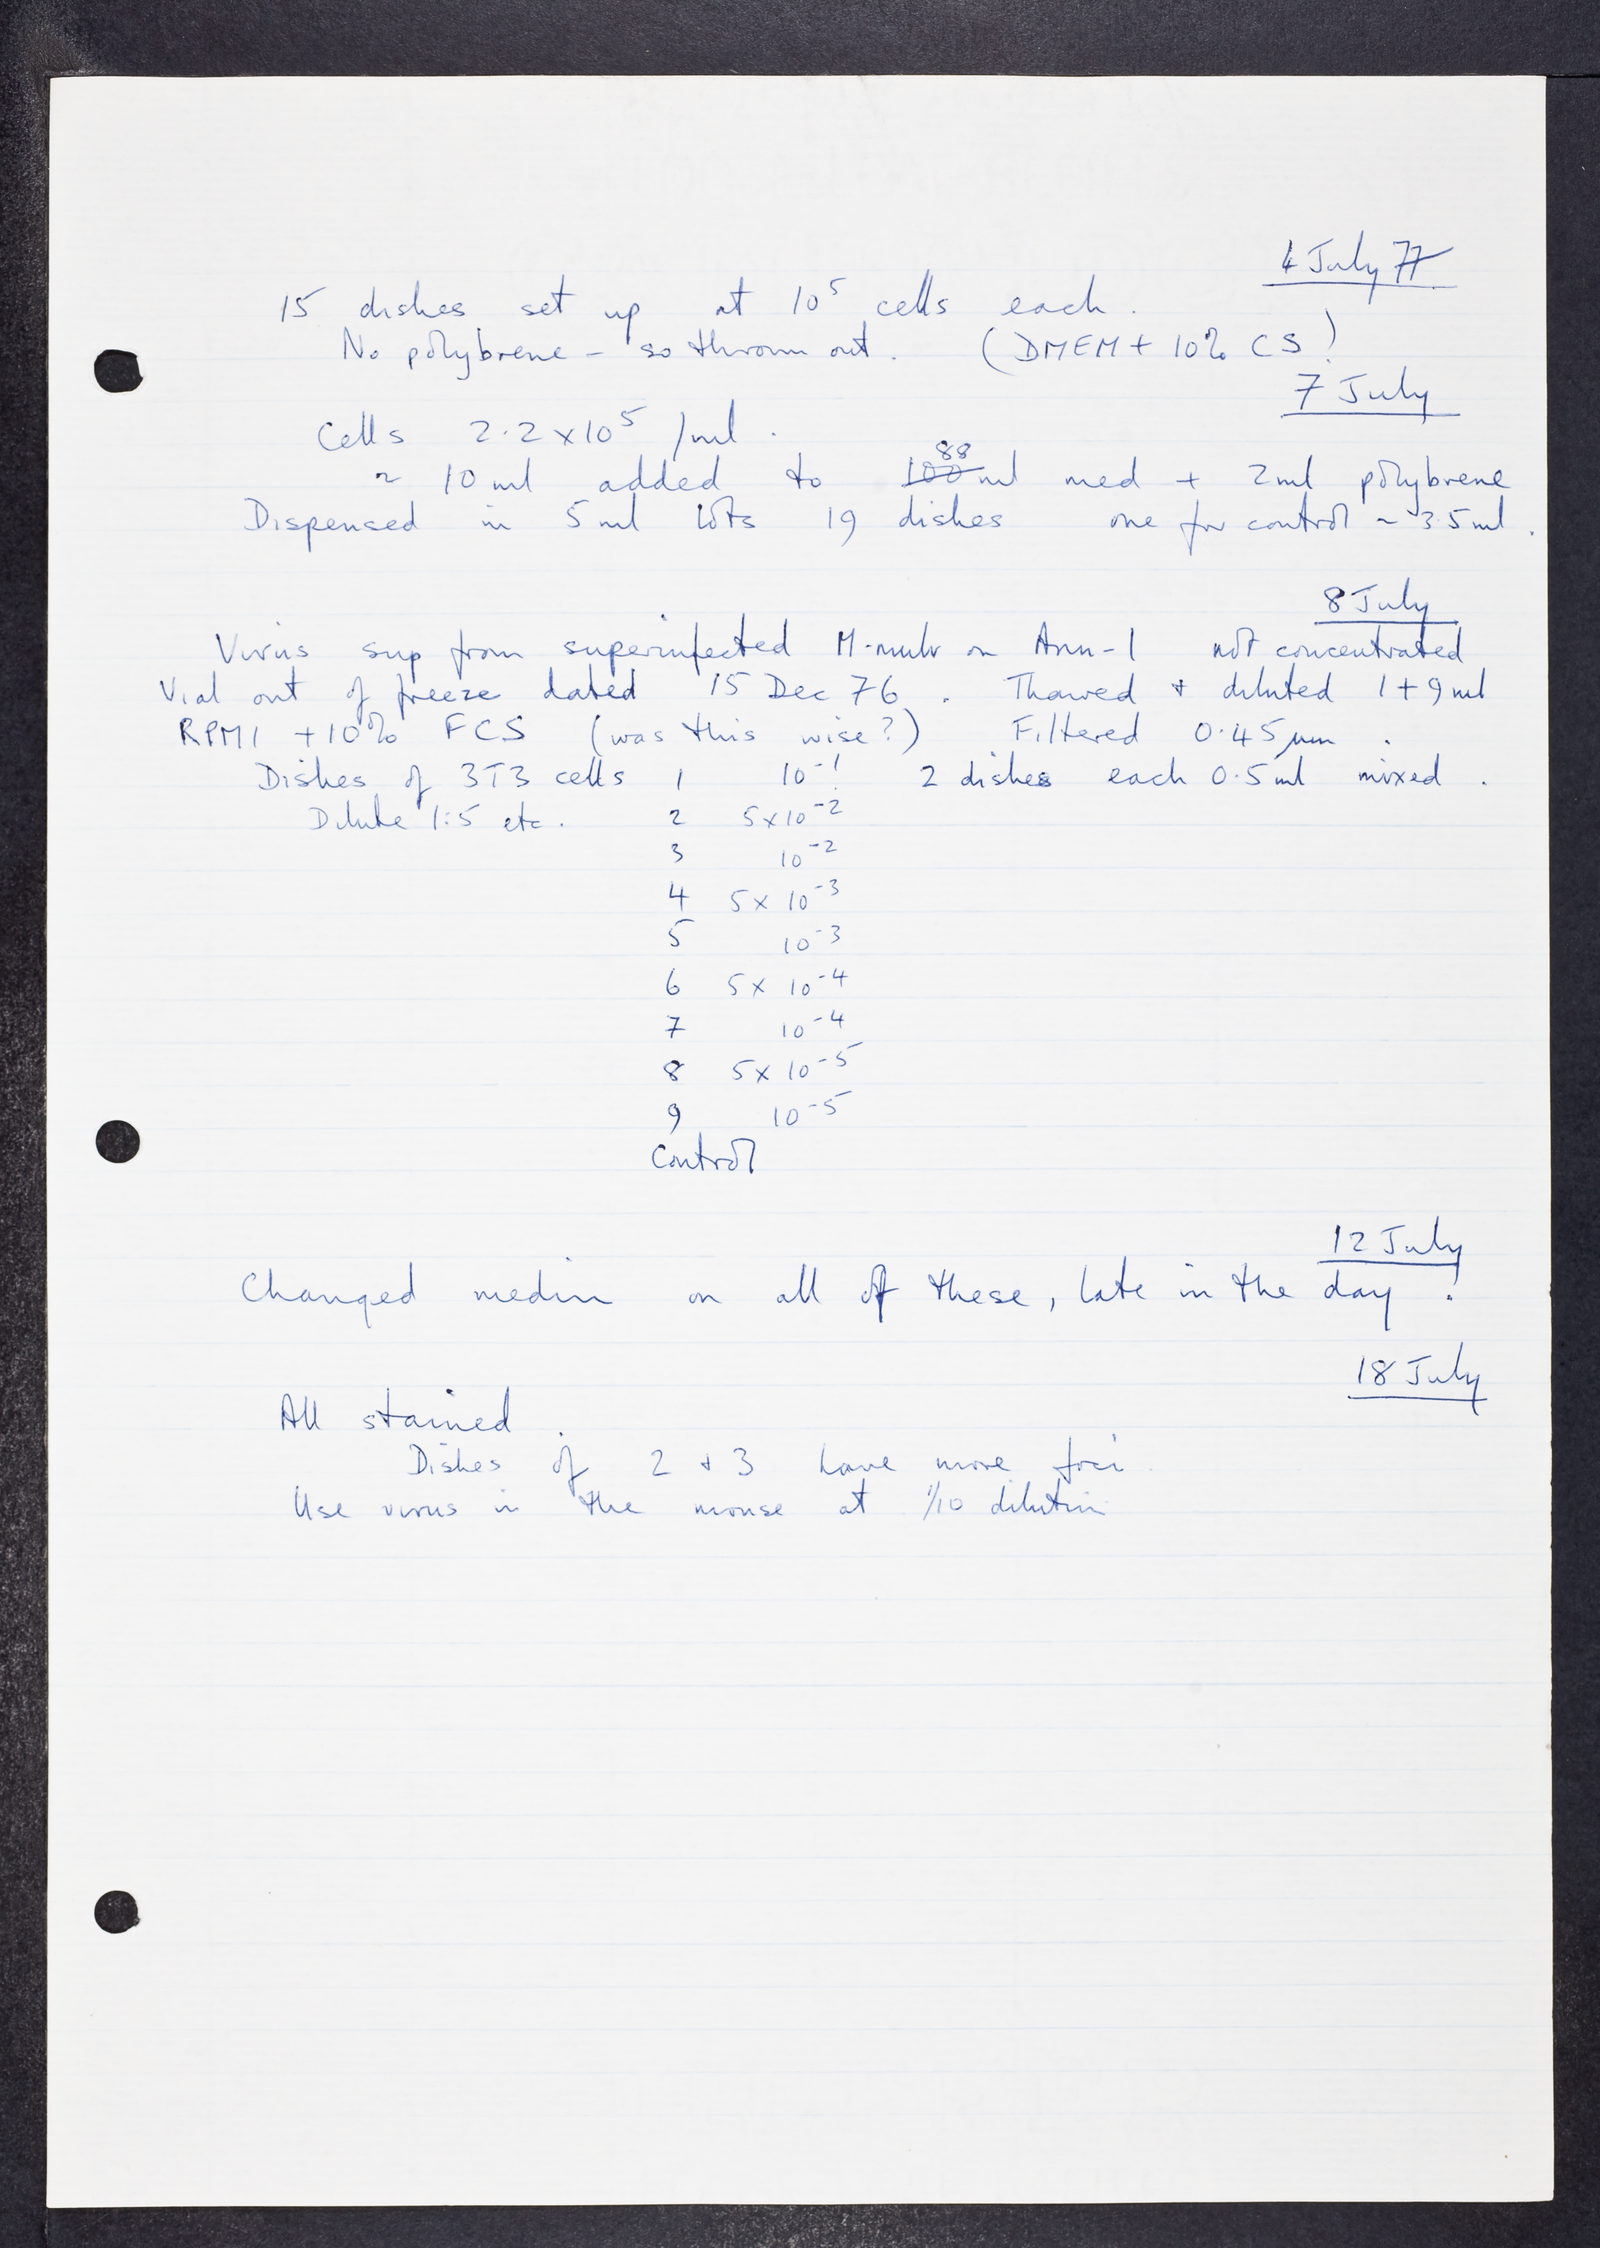 4 July 77
15 dishes set up at 10⁵ cells each.
No polybrene - so thrown out. (DMEM + 10% CS)
7 July
Cells 2.2 x 10⁵ /ml.
~ 10 ml added to 100 88 ml med + 2ml polybrene
Dispensed in 5ml lots 19 dishes one for control ~ 3.5ml.
8 July
Virus sup from superinfected M-mulv on Ann-1 not concentrated
Vial out of freeze dated 15 Dec 76. Thawed + diluted 1+9ml
RPMI +10% FCS (was this wise?) Filtered 0.45 µm.
Dishes of 3T3 cells 1 10⁻¹ 2 dishes each 0.5ml mixed.
Dilute 1:5 etc. 2 5x10⁻²
3 10⁻²
4 5x 10⁻³
5 10⁻³
6 5x 10⁻⁴
7 10⁻⁴
8 5x 10⁻⁵
9 10⁻⁵
Control
12 July
Changed medium on all of these, late in the day!
18 July
All stained.
Dishes of 2 + 3 have more foci.
Use virus in the mouse at 1/10 dilution